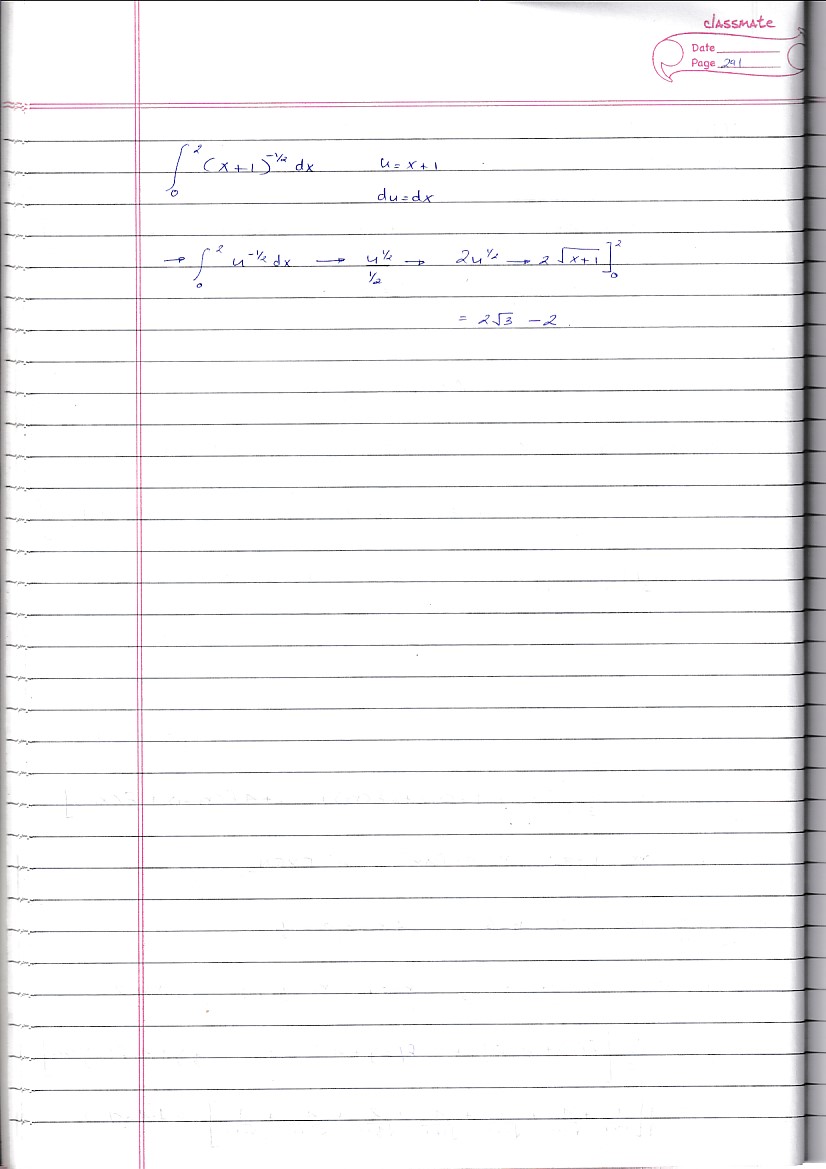 classmate
Date
Page 291
∫₀² (x+1)^(-1/2) dx    u = x+1
du = dx
→ ∫₀² u^(-1/2) dx → u^(1/2)/(1/2) → 2u^(1/2) → 2√(x+1) ]₀²
= 2√3 - 2.